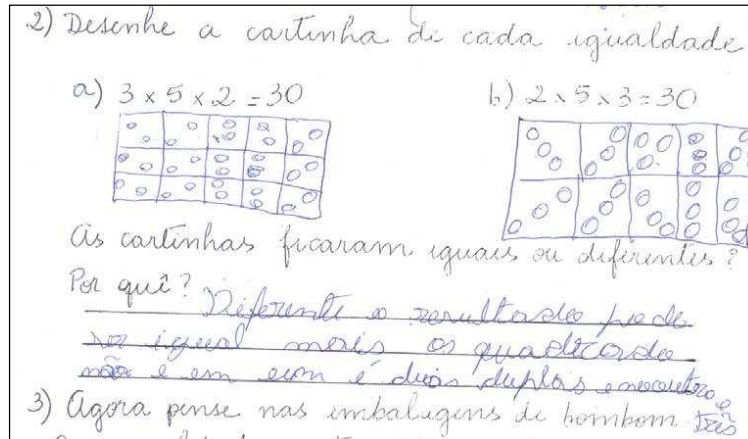 2) Desenhe a cartinha de cada igualdade
a) 3 x 5 x 2 = 30 b) 2 x 5 x 3 = 30
As cartinhas ficaram iguais ou diferentes?
Por quê? Diferente o resultado pode
ser igual mais os quadrado
não e em um é dois duplos e no outro é
três
3) Agora pense nas embalagens de bombom.